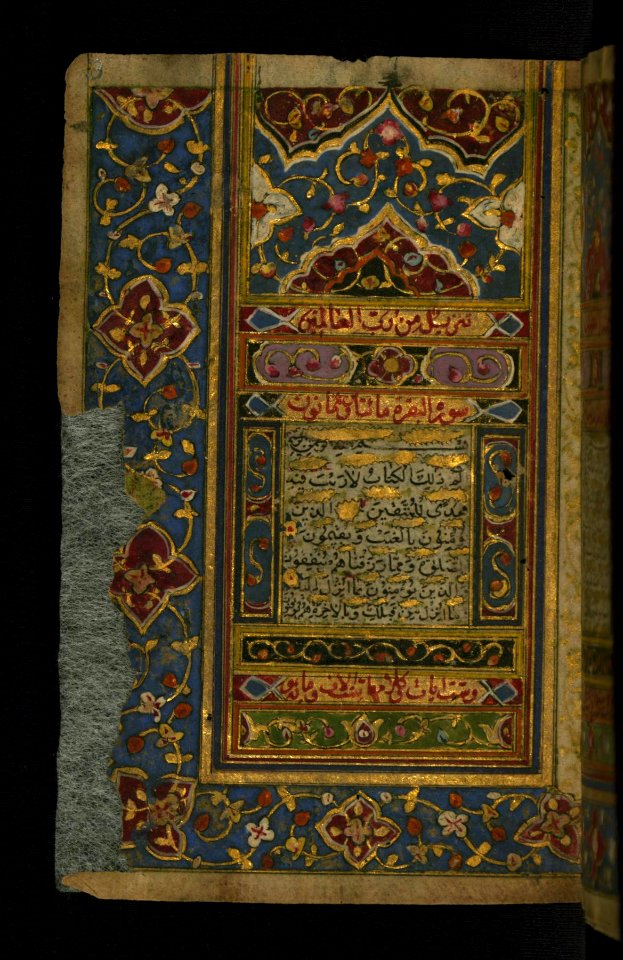 تنزيل من رب العالمين
سورة البقرة مائتان وثمانون
الم ذلك الكتاب لا ريب فيه
هدى للمتقين الذين
يؤمنون بالغيب ويقيمون
الصلوة ومما رزقناهم ينفقون
والذين يؤمنون بما انزل اليك
وما انزل من قبلك وبالاخرة هم يوقنون
وست ايات